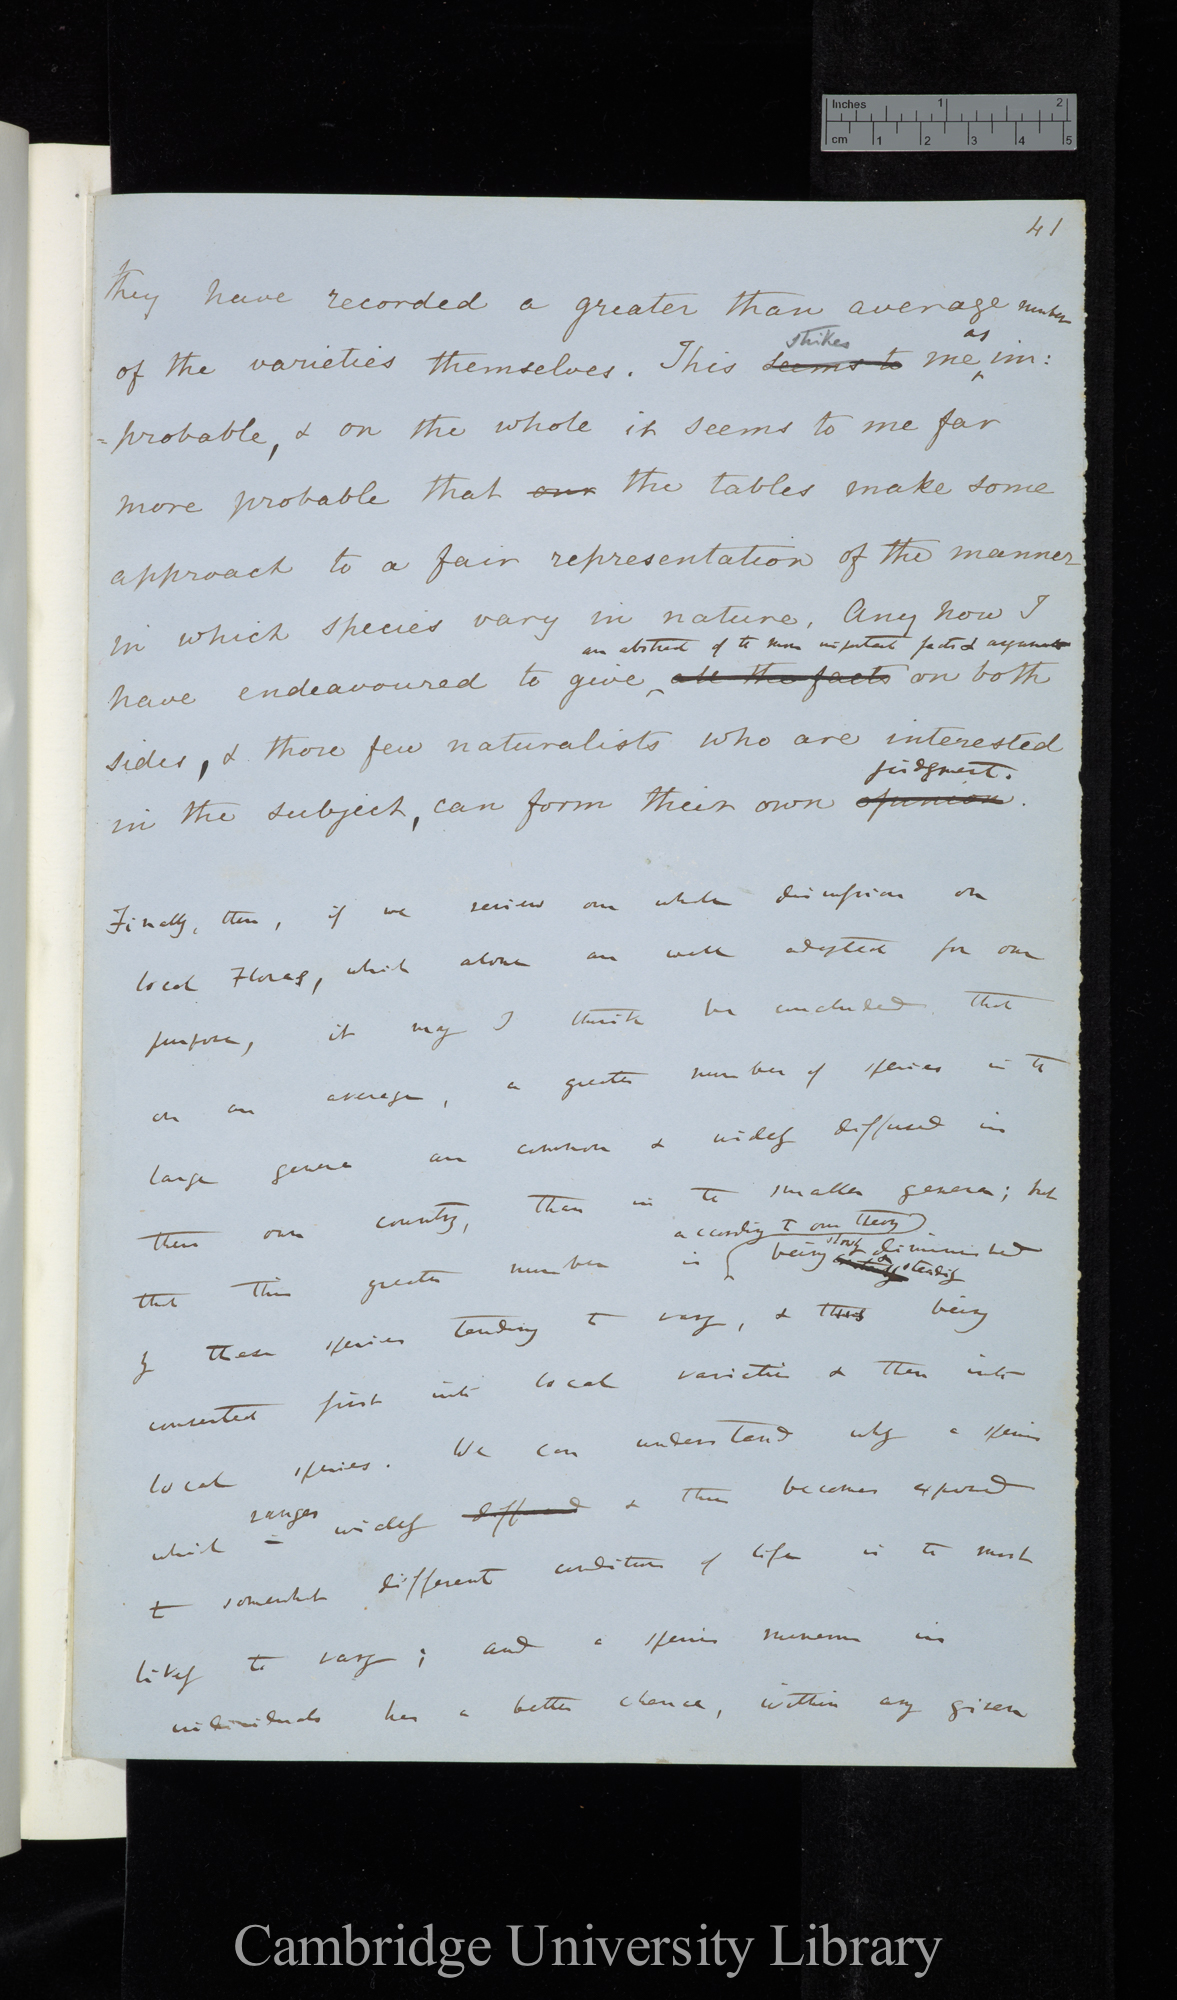 Inches 1 2
cm 1 2 3 4 5
41
they have recorded a greater than average number
of the varieties themselves. This strikes seems to me as im:
=probable, & on the whole it seems to me far
more probable that our the tables make some
approach to a fair representation of the manner
in which species vary in nature. Any how I
an abstract of the more important facts & arguments
have endeavoured to give all the facts on both
sides, & those few naturalists who are interested
judgment.
in the subject, can form their own opinion.
Finally, then, if we review our whole discussion on
local Floras, which alone are well adapted for our
purpose, it may I think be concluded that
on an average, a greater number of species in the
large genera are common & widely diffused in
their own country, than in the smaller genera; but
according to our theory
that this greater number is being slowly & steadily diminished
by these species tending to vary, & thus being
converted first into local varieties & then into
local species. We can understand why a species
which ranges is widely diffused & thus becomes exposed
to somewhat different conditions of life is the most
likely to vary; and a species numerous in
individuals has a better chance, within any given
Cambridge University Library